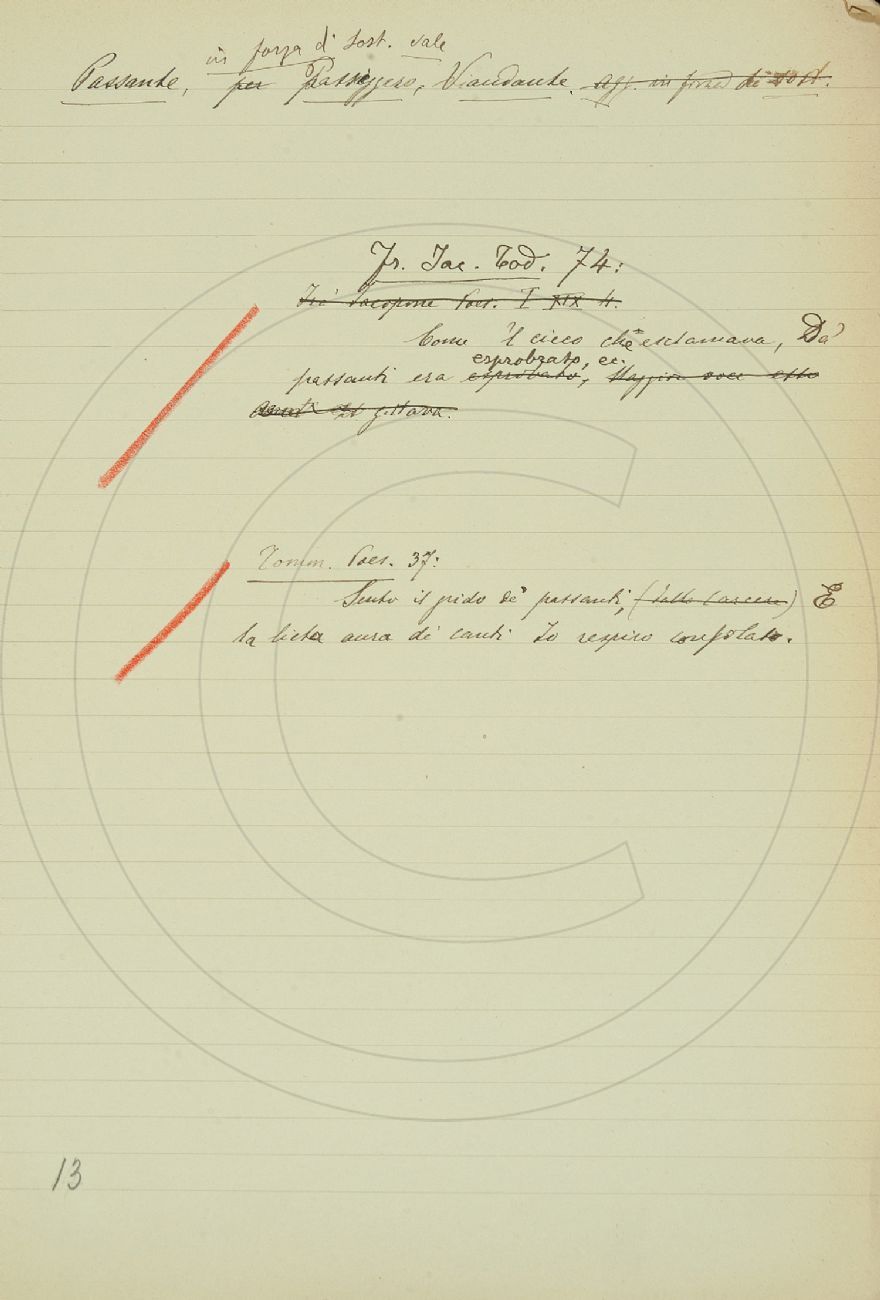 in forza di Sost. vale
Passante, per Passeggero, Viandante. Agg. in forza di Sost.
Fr. Jac. Tod. 74:
Fra Jacopone Poes. I XIX 4.
Come 'l cieco ch' esclamava, Da'
esprobrato, ec.
passanti era esprobato, Maggior voce esso
avanti gittava.
Tomm. Poes. 37:
Sento il grido de' passanti, (dalla Carcere) E
la lieta aura di canti Io respiro consolato.
13